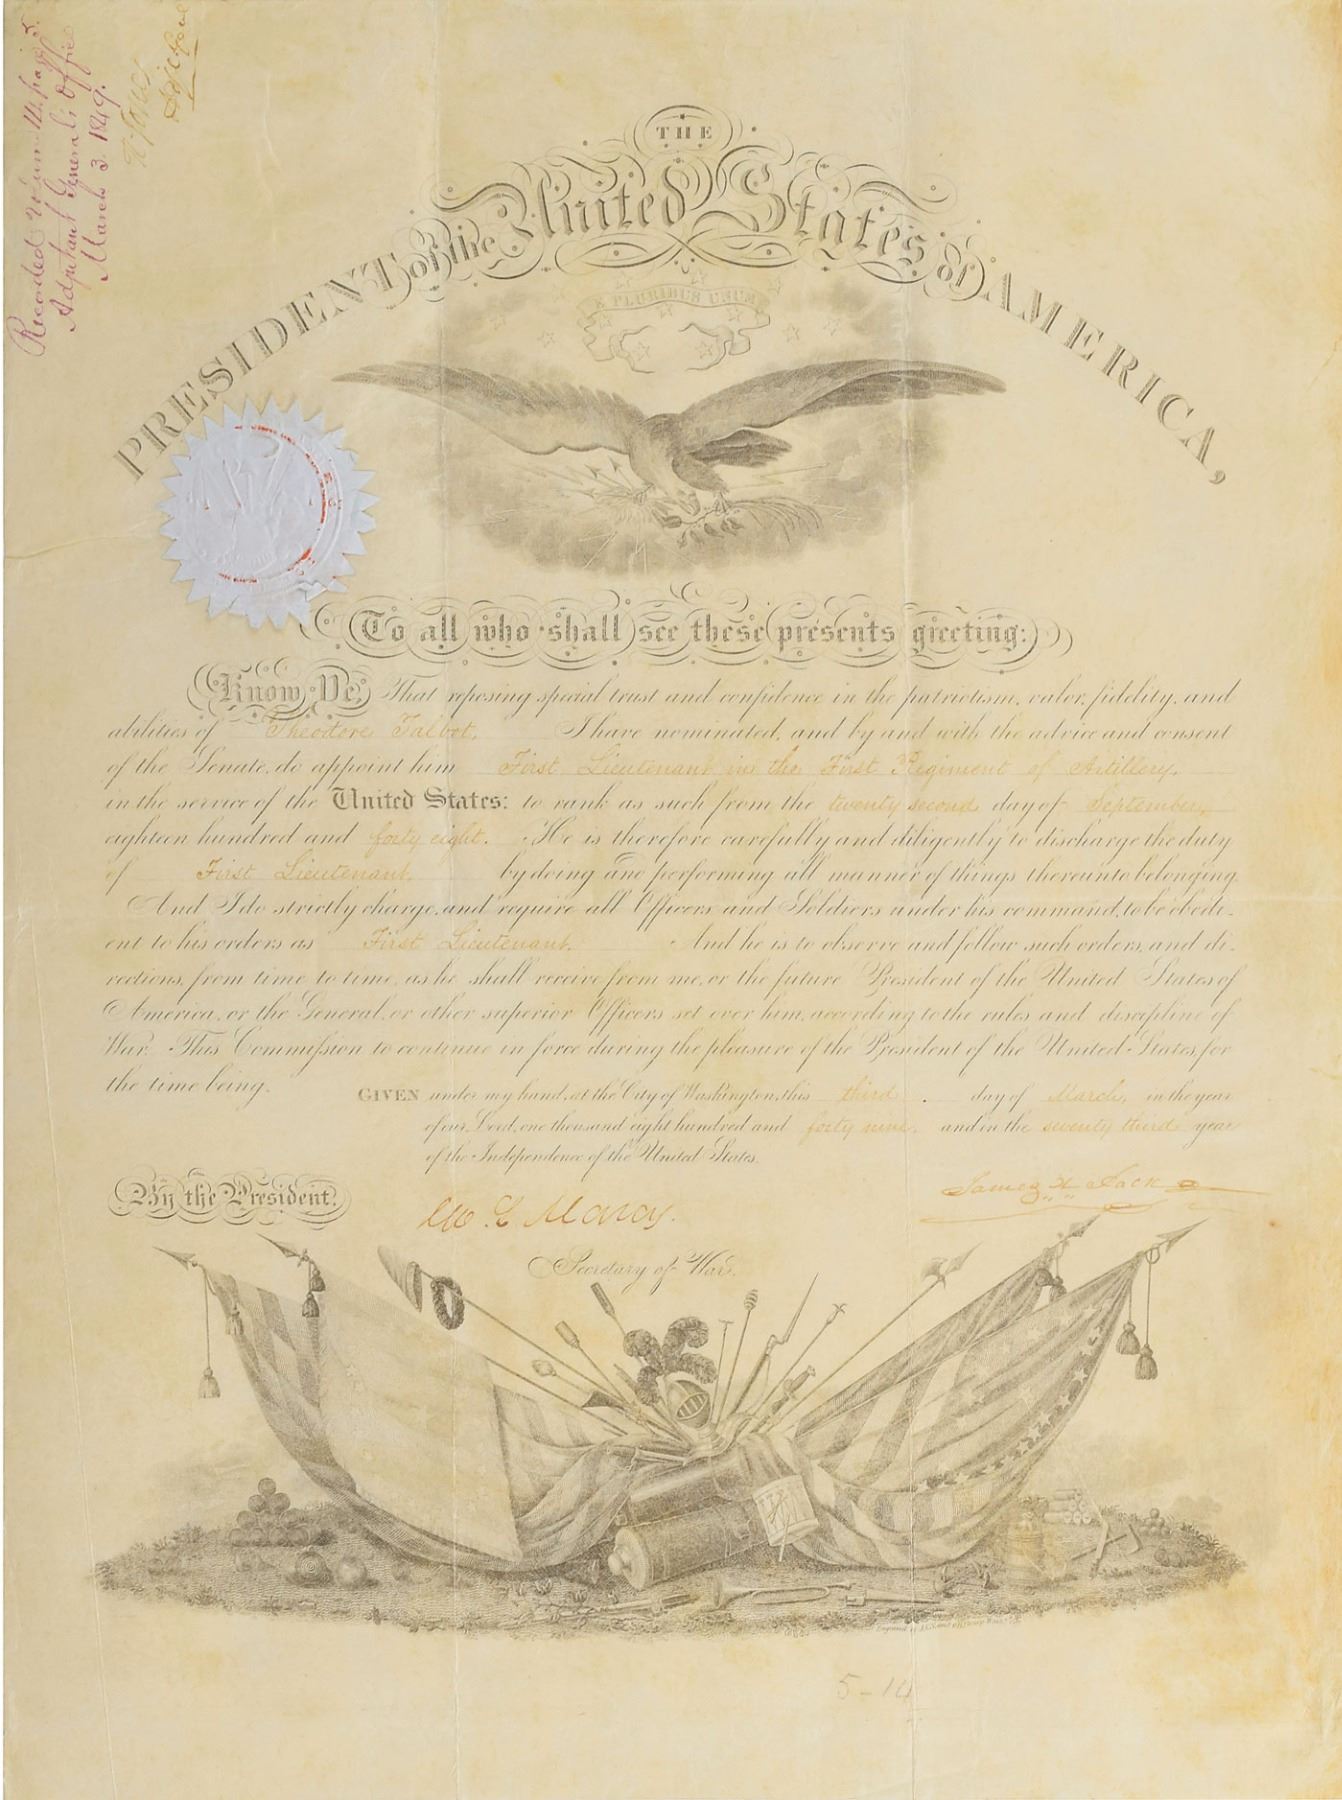 Recorded Volum 14. page 5.
Adjutant General's Office
March 3. 1849.
THE
PRESIDENT of the United States of AMERICA,
E PLURIBUS UNUM
To all who shall see these presents greeting:
Know Ye, That reposing special trust and confidence in the patriotism, valor, fidelity, and
abilities of Theodore Talbot, I have nominated, and by and with the advice and consent
of the Senate, do appoint him First Lieutenant in the First Regiment of Artillery,
in the service of the United States: to rank as such from the twenty second day of September,
eighteen hundred and forty eight. He is therefore carefully and diligently to discharge the duty
of First Lieutenant, by doing and performing all manner of things thereunto belonging.
And I do strictly charge, and require all Officers and Soldiers under his command, to be obedi-
ent to his orders as First Lieutenant. And he is to observe and follow such orders, and di-
rections, from time to time, as he shall receive from me, or the future President of the United States of
America, or the General, or other superior Officers set over him, according to the rules and discipline of
War. This Commission to continue in force during the pleasure of the President of the United States, for
the time being.
GIVEN under my hand, at the City of Washington, this third day of March, in the year
of our Lord, one thousand eight hundred and forty nine, and in the seventy third year
of the Independence of the United States.
By the President.
W. L. Marcy.
Secretary of War.
5-14